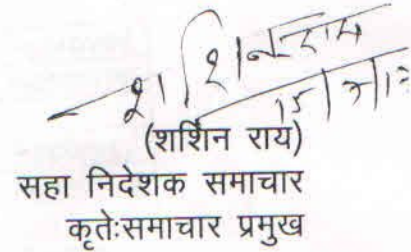 शशिन राय
(शर्शिन राय)
सहा निदेशक समाचार
कृतेःसमाचार प्रमुख